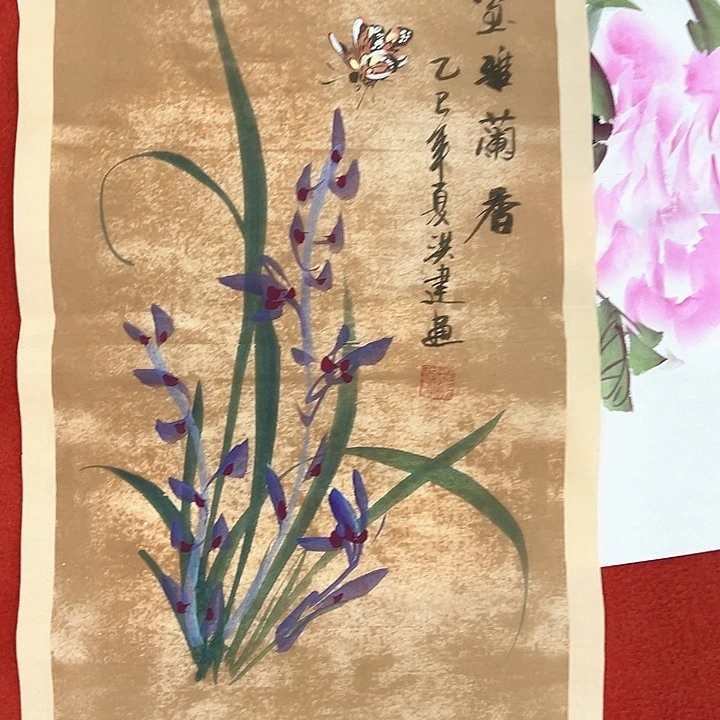 室雅蘭香
乙巳年夏洪建画